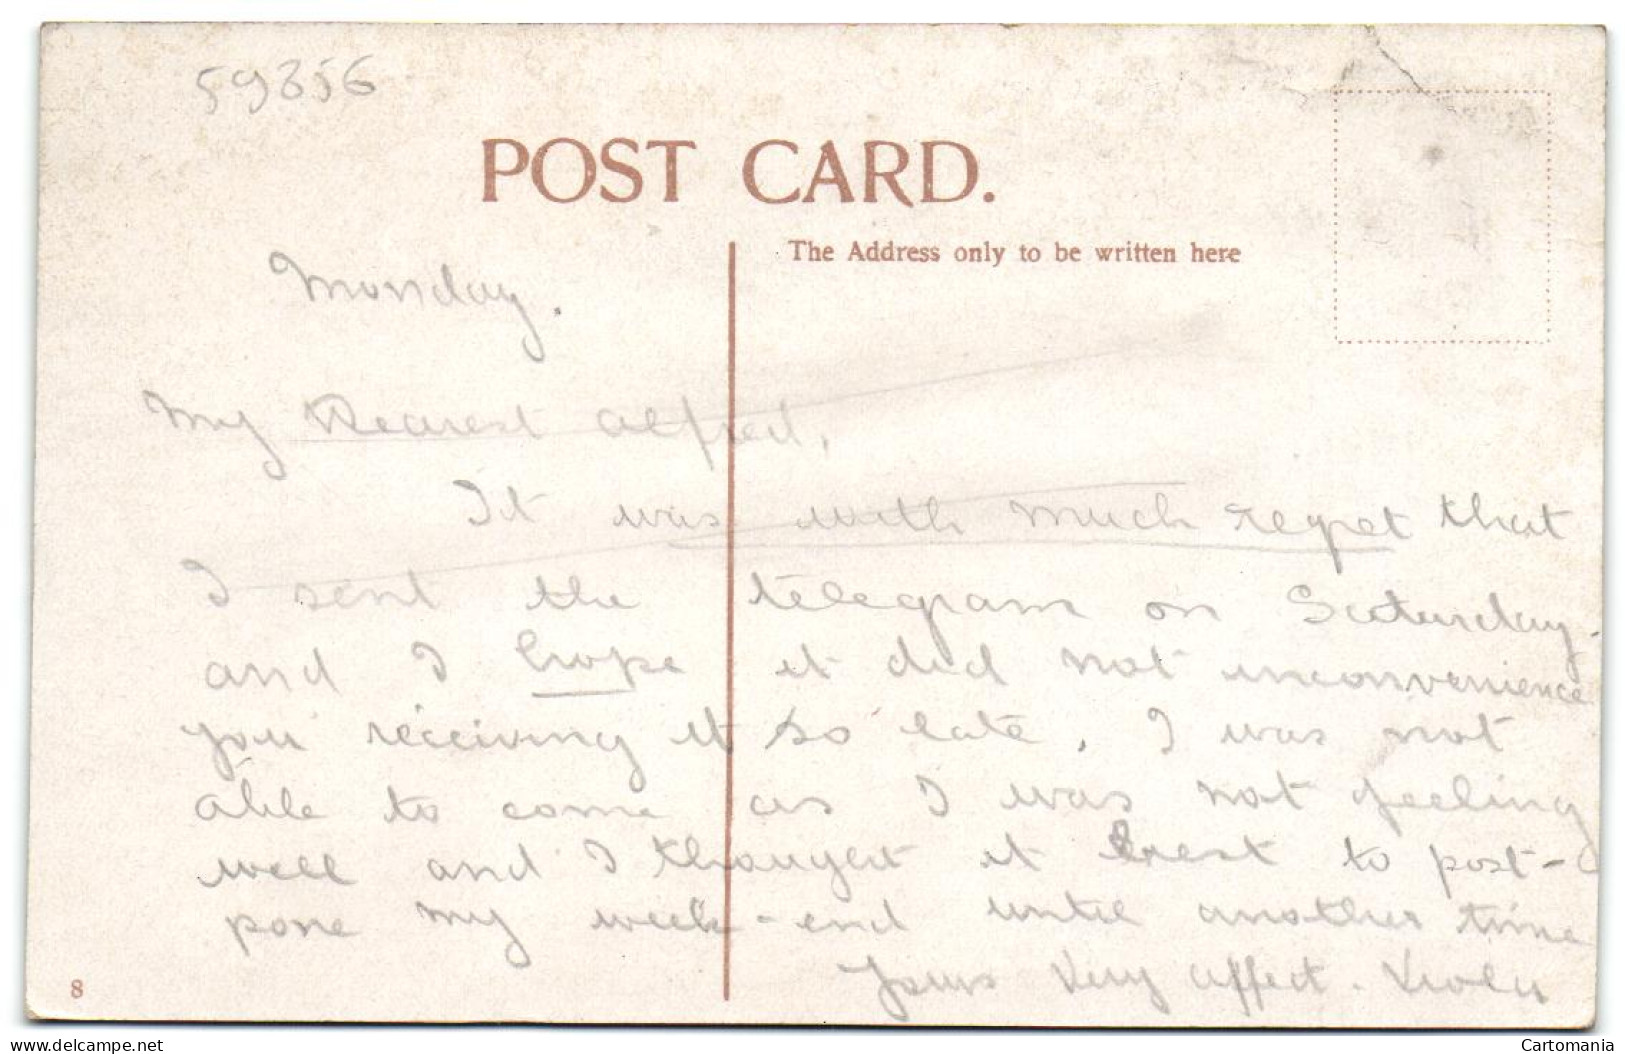 59856
POST CARD.
The Address only to be written here
Monday.
My Dearest Alfred,
It was with much regret that
I sent the telegram on Saturday.
and I hope it did not inconvenience
you receiving it so late. I was not
able to come as I was not feeling
well and I thought it best to post-
pone my week-end until another time
Yours Very Affect. Violet
8
www.delcampe.net
Cartomania